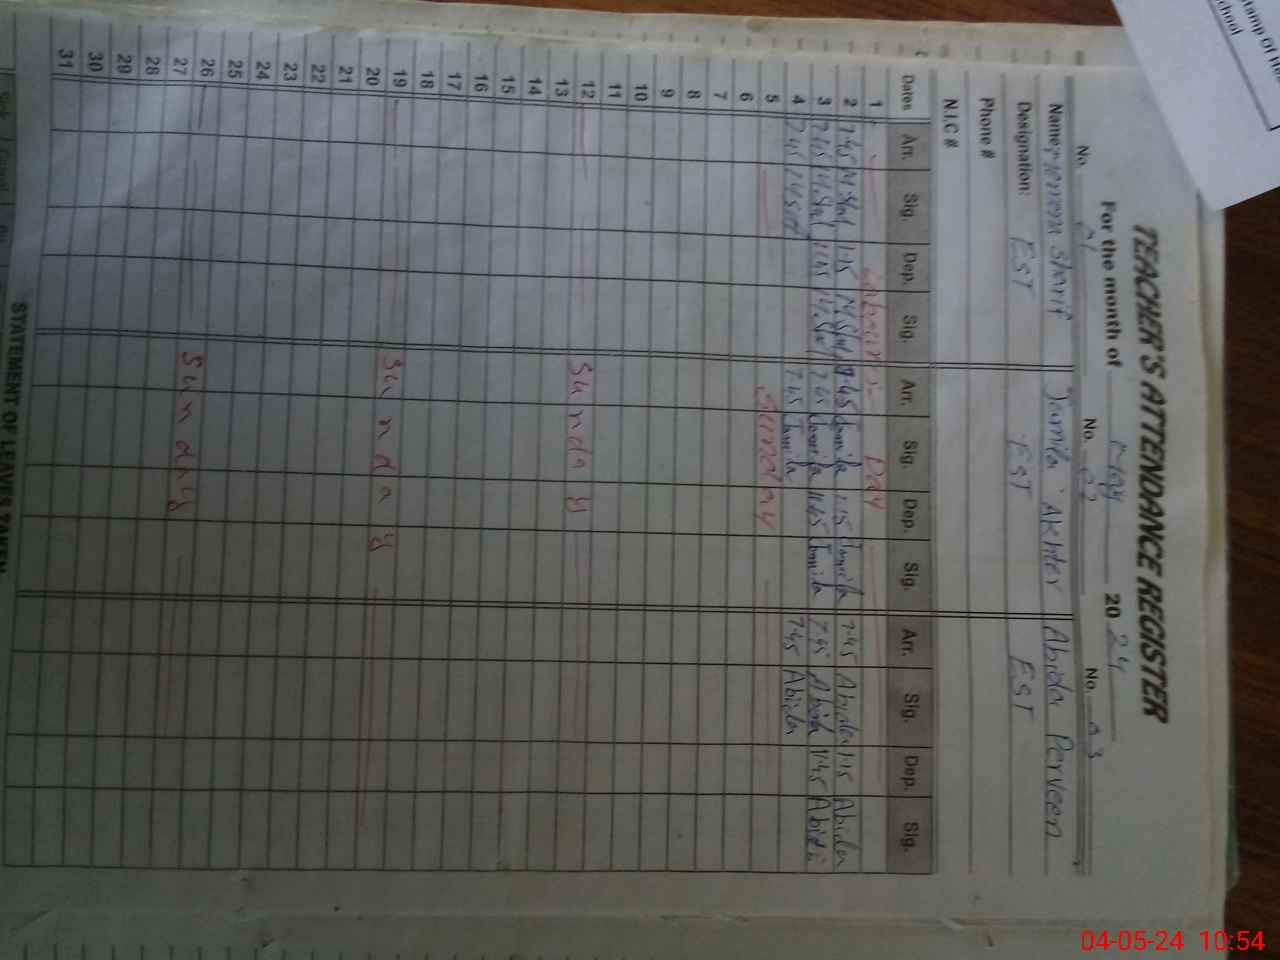 TEACHER'S ATTENDANCE REGISTER
For the month of May 2024
No. 01 No. 02 No. 03
Name: Sharif Jamila Akhter Abida Perveen
Designation: EST EST EST
Phone #
N.I.C #
Dates Arr. Sig. Dep. Sig. Arr. Sig. Dep. Sig. Arr. Sig. Dep. Sig.
1 Labour Day
2 7.45 M.Sharif 1.15 M.Sharif 7.45 Jamila 1.15 Jamila 7.45 Abida 1.15 Abida
3 7.45 M.Sharif 11.45 M.Sharif 7.45 Jamila 11.45 Jamila 7.45 Abida 11.45 Abida
4 7.45 M.Sharif 7.45 Jamila 7.45 Abida
5 Sunday
6
7
8
9
10
11
12 Sunday
13
14
15
16
17
18
19 Sunday
20
21
22
23
24
25
26 Sunday
27
28
29
30
31
STATEMENT OF LEAVES TAKEN
04-05-24 10:54